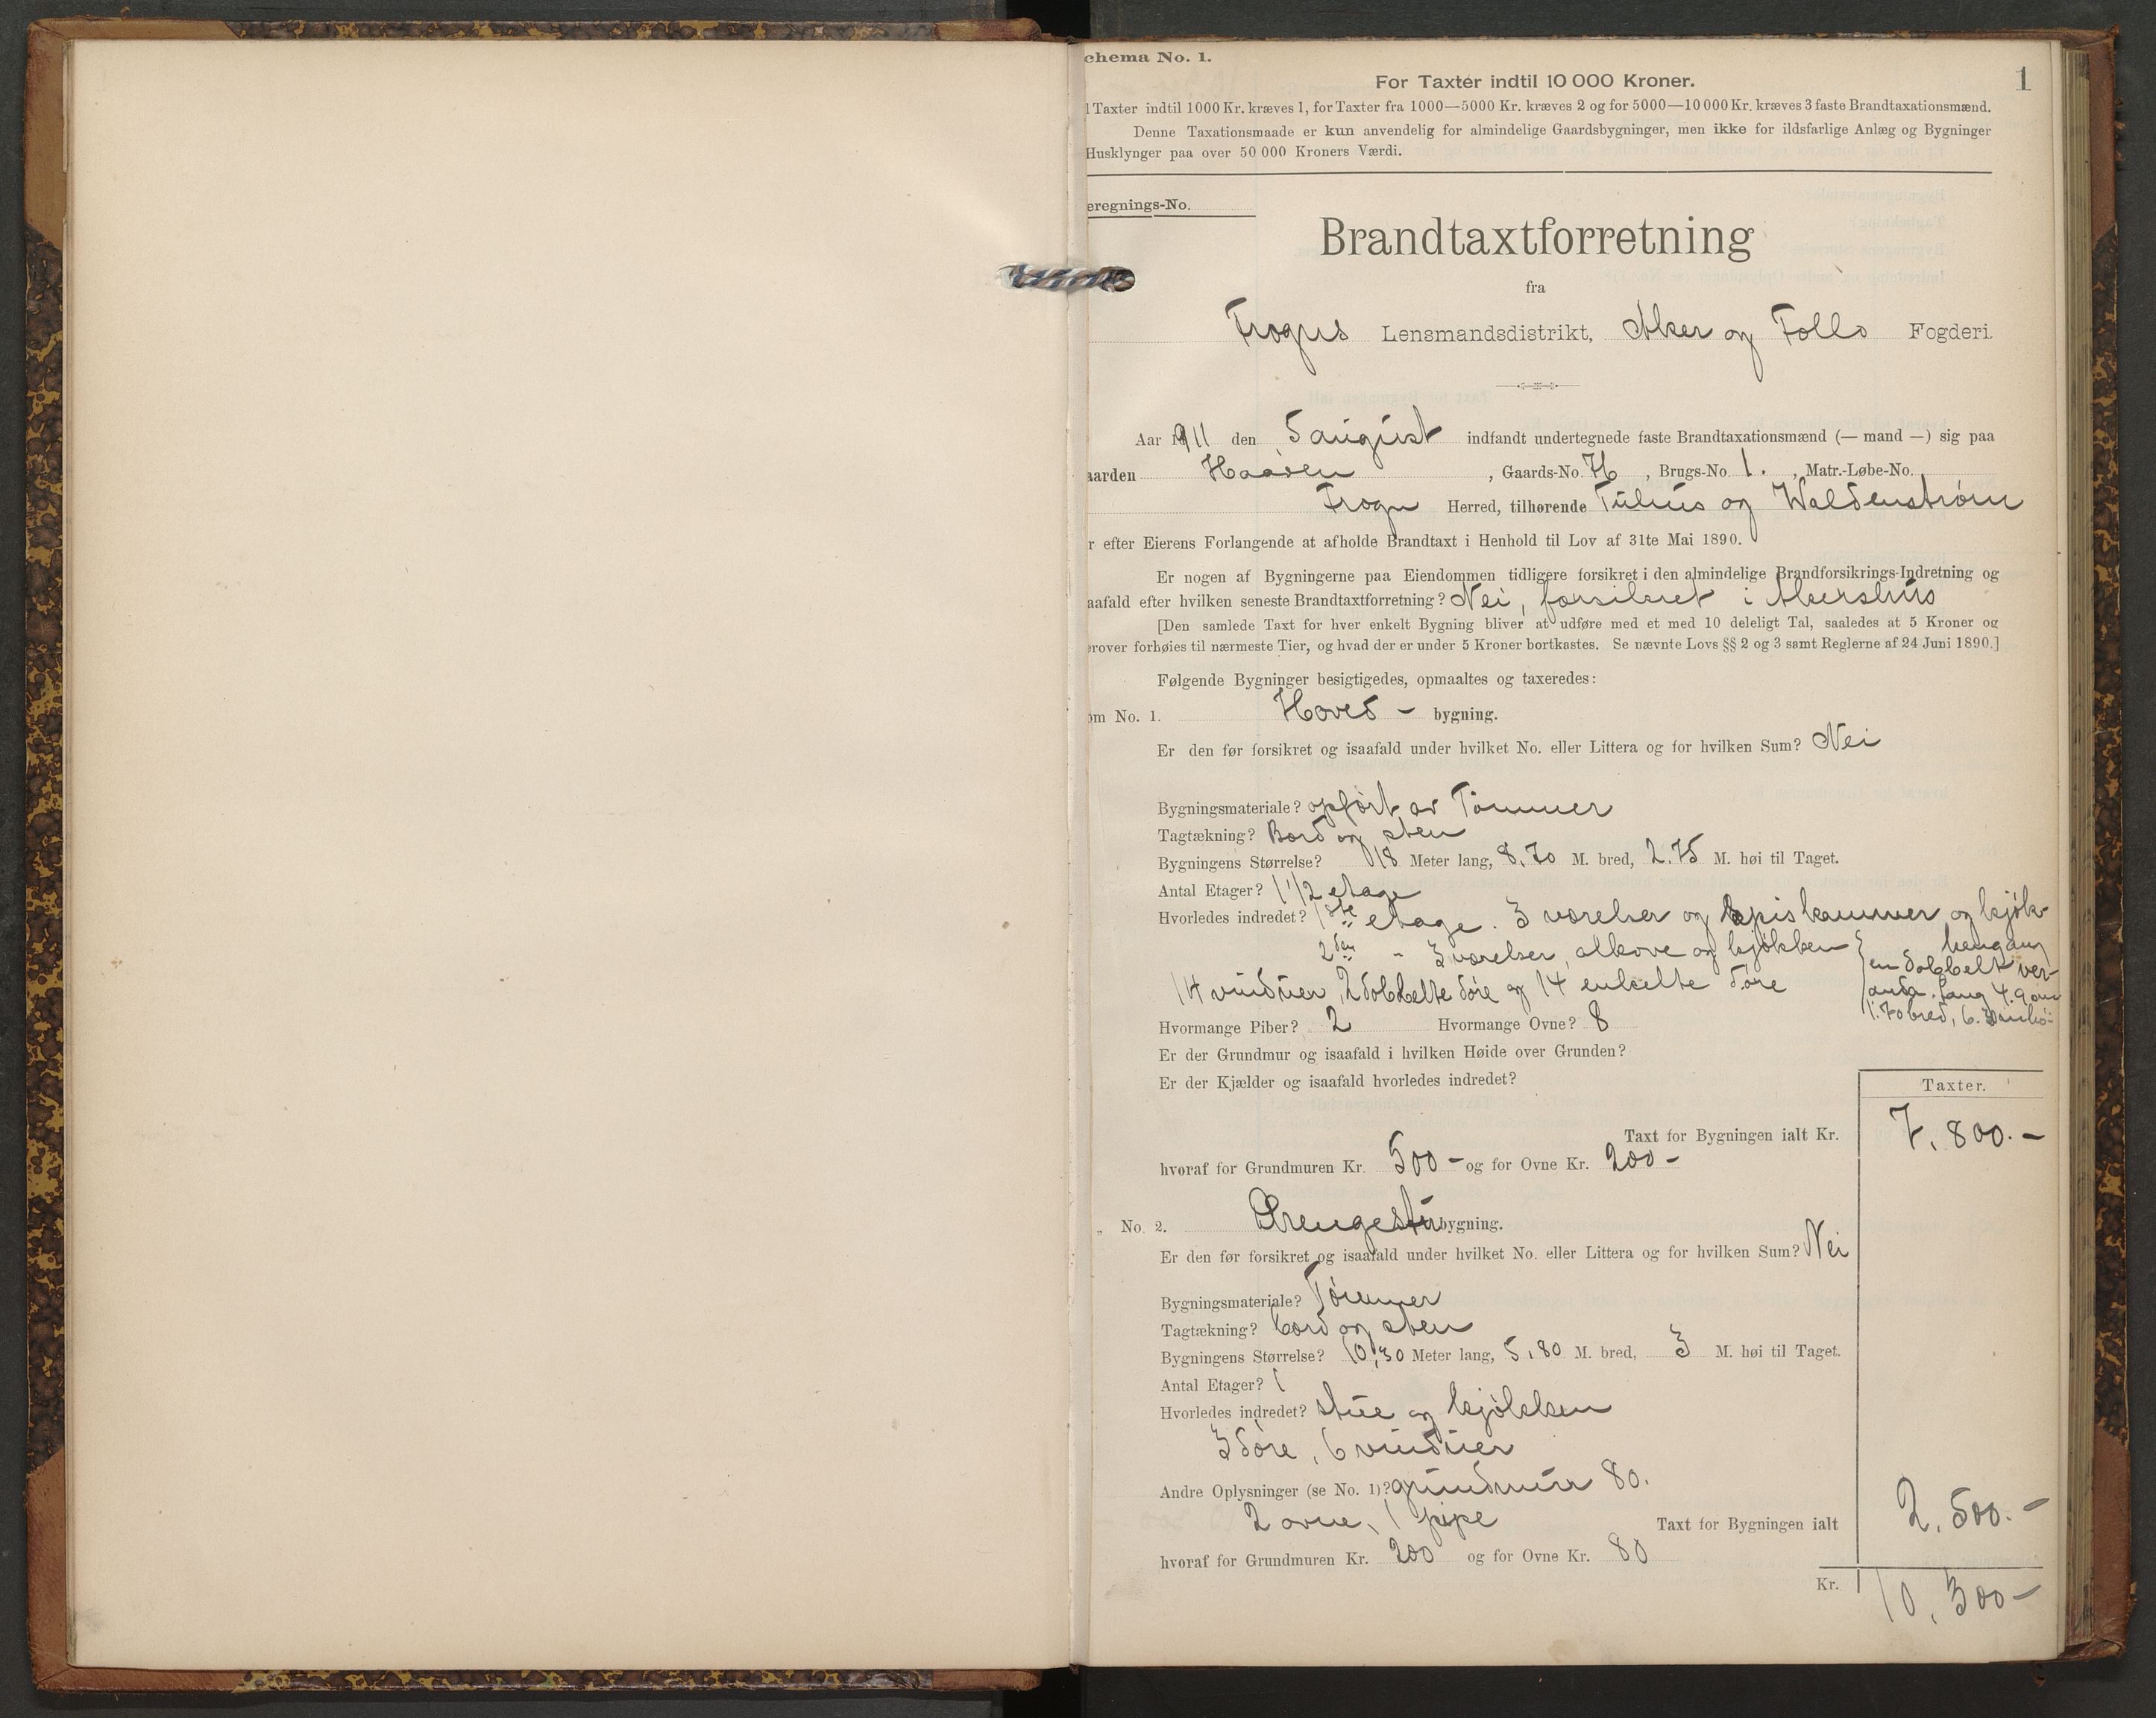 chema No. 1.
1
For Taxter indtil 10 000 Kroner.
l Taxter indtil 1000 Kr. kræves 1, for Taxter fra 1000—5000 Kr. kræves 2 og for 5000—10 000 Kr. kræves 3 faste Brandtaxationsmænd.
Denne Taxationsmaade er kun anvendelig for almindelige Gaardsbygninger, men ikke for ildsfarlige Anlæg og Bygninger
Husklynger paa over 50 000 Kroners Værdi.
eregnings-No.
Brandtaxtforretning
fra
Frogns Lensmandsdistrikt, Aker og Follo Fogderi.
Aar 1911 den 5 august indfandt undertegnede faste Brandtaxationsmænd (— mand —) sig paa
aarden Haaøen, Gaards-No. , Brugs-No. 1., Matr.-Løbe-No.
Frogn Herred, tilhørende og Waldenstrøm
r efter Eierens Forlangende at afholde Brandtaxt i Henhold til Lov af 31te Mai 1890.
Er nogen af Bygningerne paa Eiendommen tidligere forsikret i den almindelige Brandforsikrings-Indretning og
aafald efter hvilken seneste Brandtaxtforretning? Nei, forsikret i Akershus
[Den samlede Taxt for hver enkelt Bygning bliver at udføre med et med 10 deleligt Tal, saaledes at 5 Kroner og
erover forhøies til nærmeste Tier, og hvad der er under 5 Kroner bortkastes. Se nævnte Lovs §§ 2 og 3 samt Reglerne af 24 Juni 1890.]
Følgende Bygninger besigtigedes, opmaaltes og taxeredes:
om No. 1. Hoved- bygning.
Er den før forsikret og isaafald under hvilket No. eller Littera og for hvilken Sum? Nei
Bygningsmateriale? opført av Tømmer
Tagtækning? Bord og sten
Bygningens Størrelse? 18 Meter lang, 8,70 M. bred, 2.75 M. høi til Taget.
Antal Etager? 1 1/2 etage
Hvorledes indredet? 1ste etage. 3 værelser og spiskammer og kjøk-
2den " 3 værelser, alkove og kjøkken
en dobbelt ver-
anda. lang 4.90 m
1.70 bred, 6.
14 vinduer, 2 dobbelte døre og 14 enkelte døre
Hvormange Piber? 2 Hvormange Ovne? 8
Er der Grundmur og isaafald i hvilken Høide over Grunden?
Er der Kjælder og isaafald hvorledes indredet?
Taxter.
Taxt for Bygningen ialt Kr. 7,800.-
hvoraf for Grundmuren Kr. 500- og for Ovne Kr. 200-
„ No. 2. Drengestu bygning.
Er den før forsikret og isaafald under hvilket No. eller Littera og for hvilken Sum? Nei
Bygningsmateriale? Tømmer
Tagtækning? bord og sten
Bygningens Størrelse? 10,30 Meter lang, 5,80 M. bred, 3 M. høi til Taget.
Antal Etager? 1
Hvorledes indredet? stue og kjøkken
3 døre, 6 vinduer
Andre Oplysninger (se No. 1)? grundmur 80.
2 ovne, 1 pipe
Taxt for Bygningen ialt 2,500.-
hvoraf for Grundmuren Kr. 200 og for Ovne Kr. 80
Kr. 10,300-